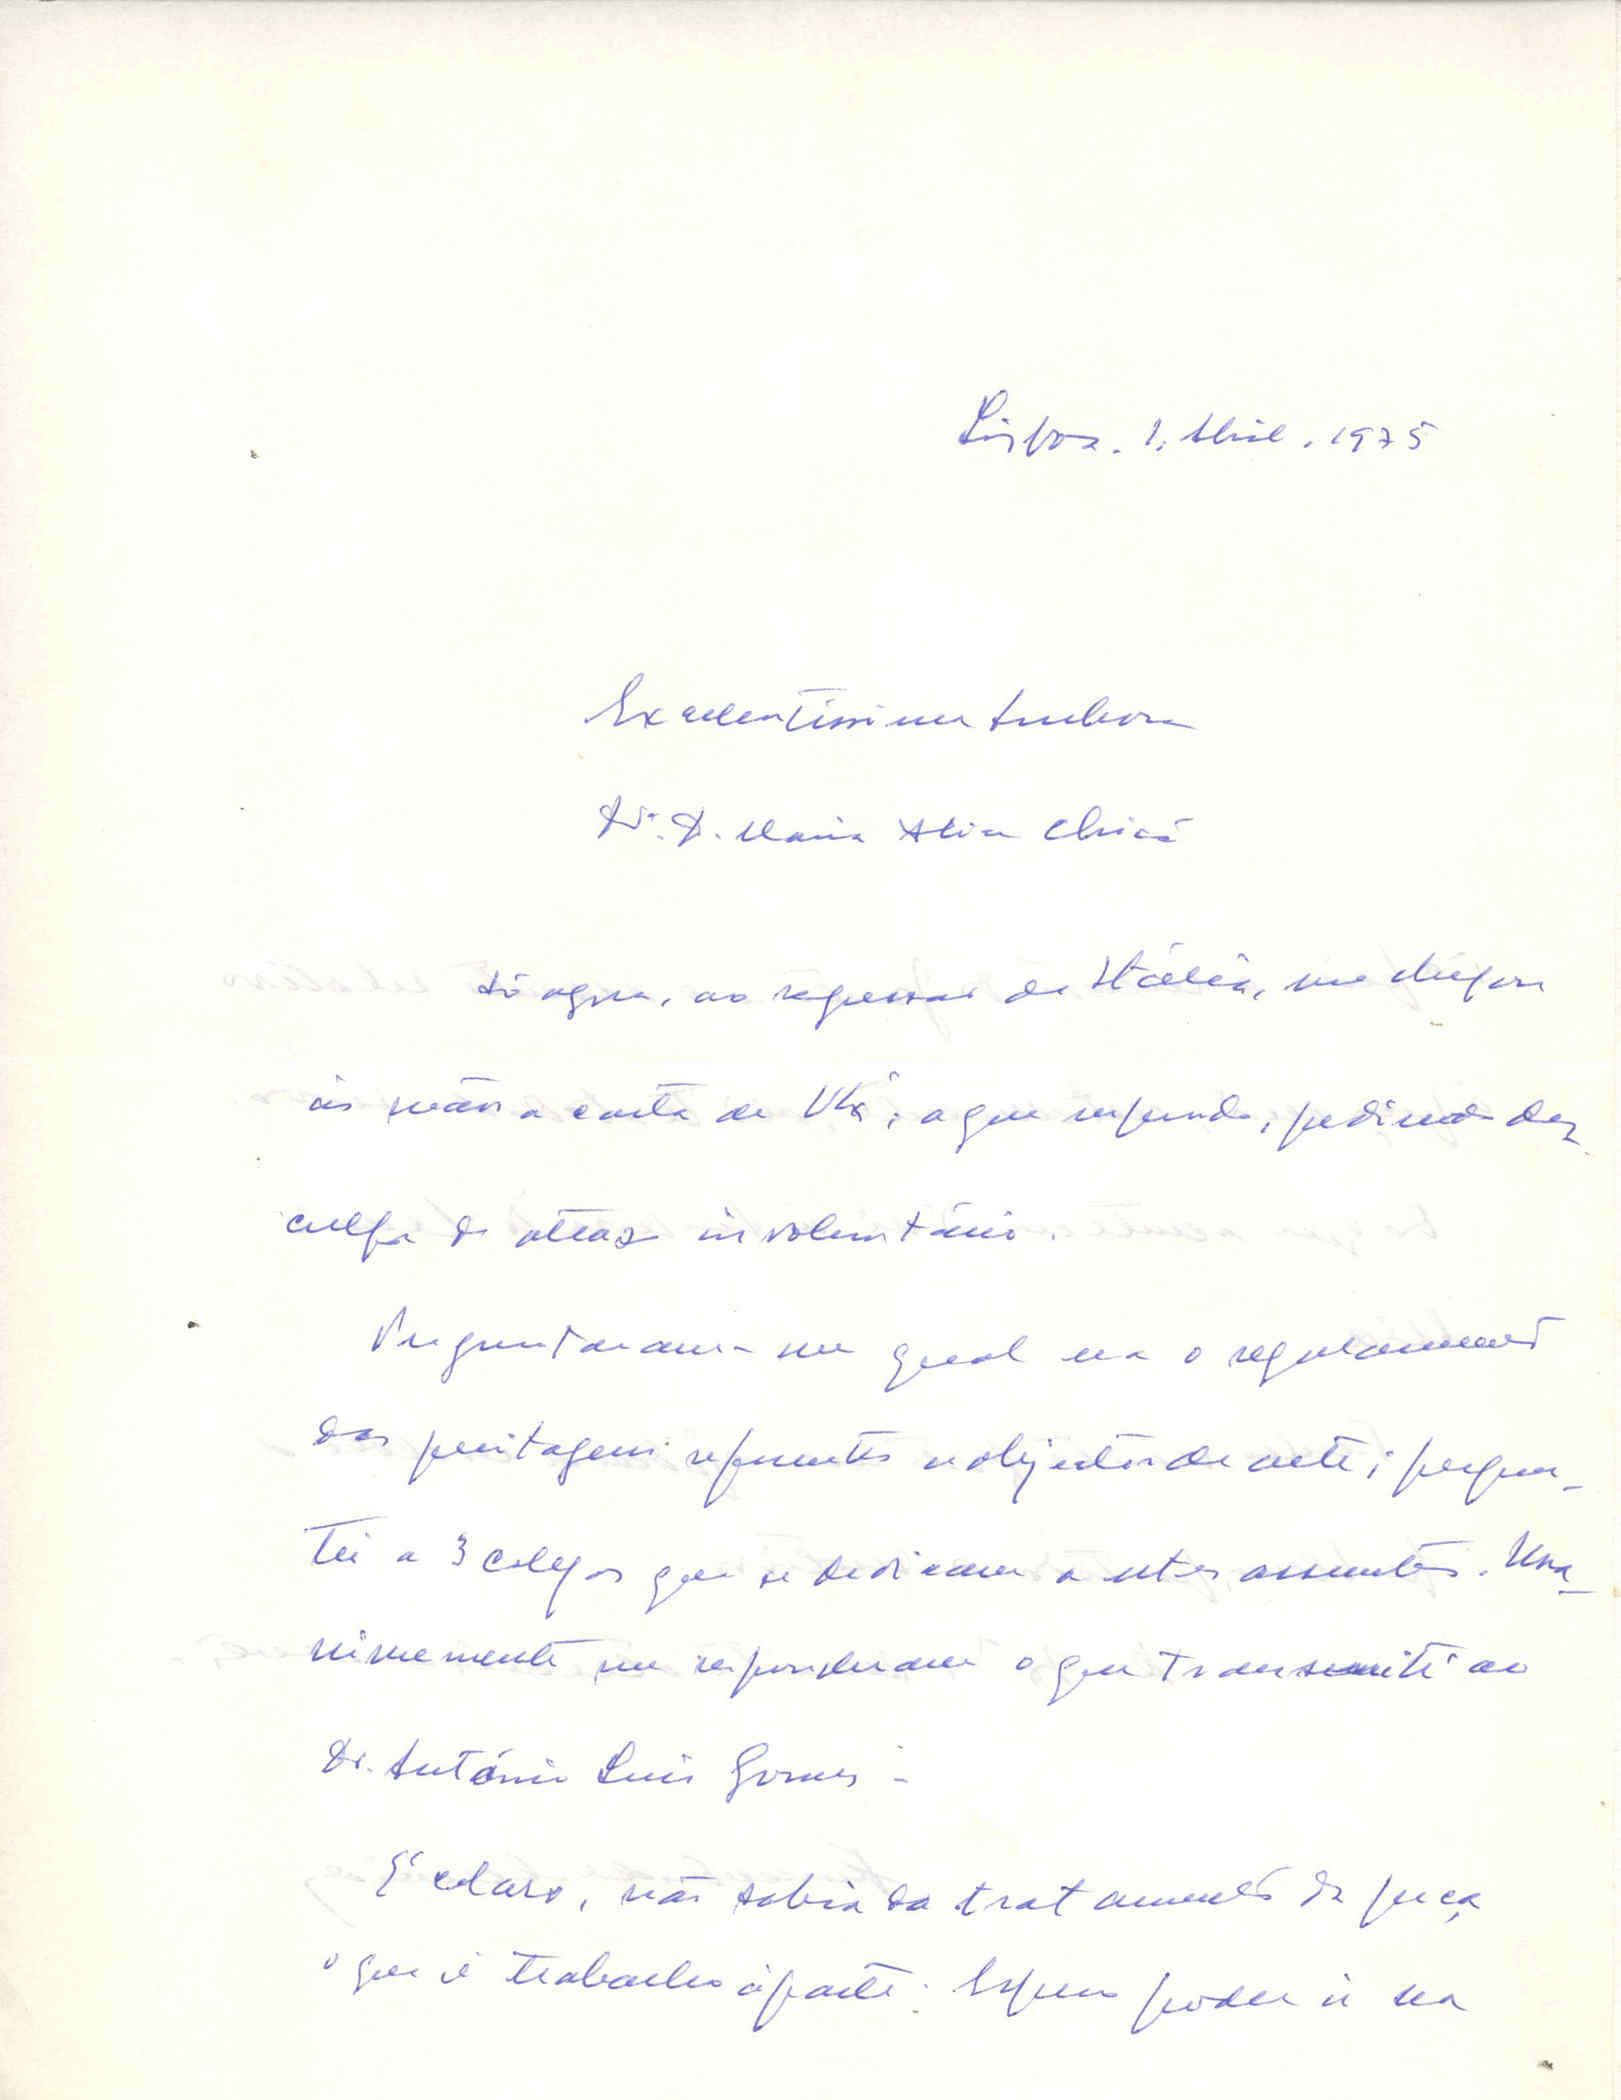 Lisboa. 1. Abril. 1975
Excelentíssima Senhora
Drª. D. Maria Alice Chicó
Só agora, ao regressar de Itália, me chegou
às mãos a carta de V. Exª; a que respondo, pedindo des
culpa do atrazo involuntário.
Preguntaram-me qual era o regulamento
das peritagens referentes a objectos de arte; pergun-
tei a 3 colegas que se dedicam a estes assuntos. Una-
nimemente me responderam o que transmiti ao
Dr. António Luis Gomes.
É claro, não sabia do tratamento da peça
o que é trabalho àparte. Espero poder ir na